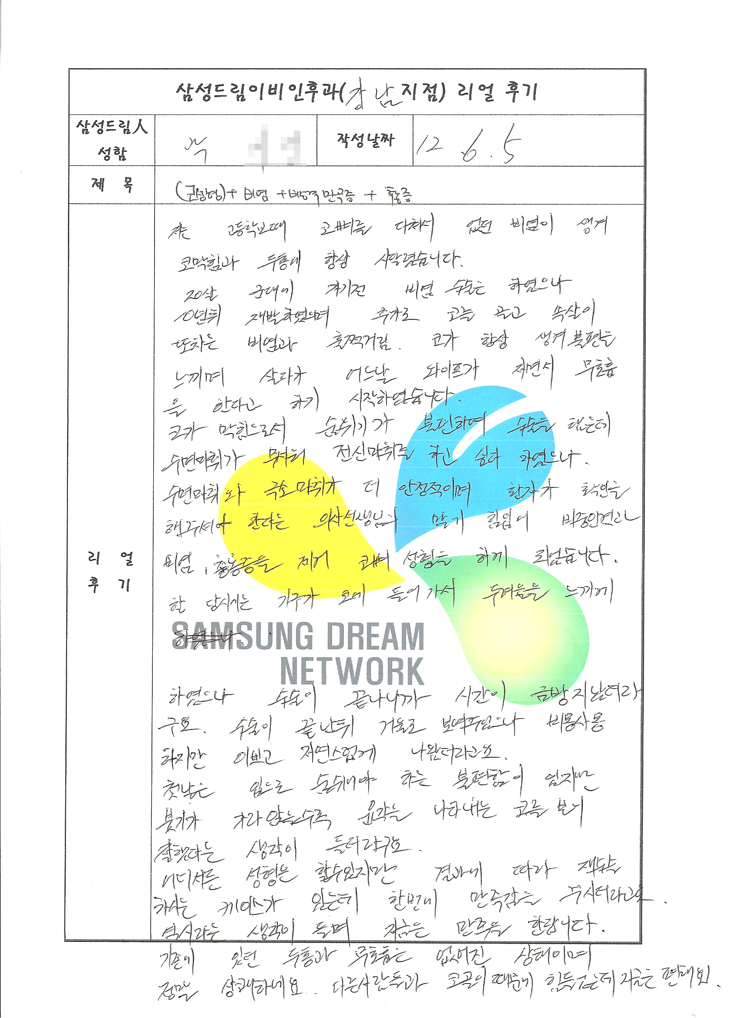 삼성드림이비인후과(강남지점) 리얼 후기
삼성드림人
성함
박
작성날짜
12. 6. 5
제 목
+ 비염 + 비중격만곡증 +
리 얼
후 기
저는 고등학교때 코뼈를 다쳐서 없던 비염이 생겨
코막힘과 두통에 항상 시달렸습니다.
20살 군대에 가기전 비염 수술은 하였으나
10년뒤 재발하였으며 추가로 코를 골고 속살이
또차는 비염과 훌쩍거림. 코가 항상 생겨 불편을
느끼며 살다가 어느날 와이프가 자면서 무호흡
을 한다고 하기 시작하였습니다.
코가 막힘으로서 숨쉬기가 불편하여 수술을
수면마취가 무서워 전신마취를 하고 싶다 하였으나.
수면마취와 국소마취가 더 안정적이며 환자가 확인을
해주셔야 한다는 의사선생님의 말에 힘입어
비염, 을 제거 코뼈 성형을 하게 되었습니다.
할 당시에는 기구가 코에 들어가서 두려움을 느끼게
SAMSUNG DREAM
NETWORK
하였으나 수술이 끝나니까 시간이 금방 지났더라
구요. 수술이 끝난뒤 거울로 보여주었으나
하지만 이쁘고 자연스럽게 나왔더라고요.
첫날은 입으로 숨쉬어야 하는 불편함이 있지만
붓기가 가라앉을수록 윤곽을 나타내는 코를 보니
잘했다는 생각이 들더라구요.
어디서든 성형은 할수있지만 결과에 따라 재수술
하시는 케이스가 있는데 한번에 만족감을 주시더라고요
역시라는 생각이 들며 지금은 만족을 합니다.
기존에 있던 두통과 무호흡은 없어진 상태이며
정말 상쾌하네요. 다른사람들과 코골이때문에 힘들었는데 지금은 편해요.